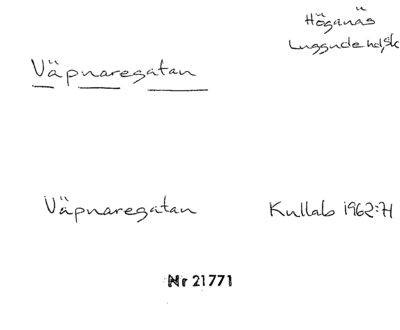 Höganäs
Luggude hd, Sk
Väpnaregatan
Väpnaregatan
Kullab 1962:71
Nr 21771